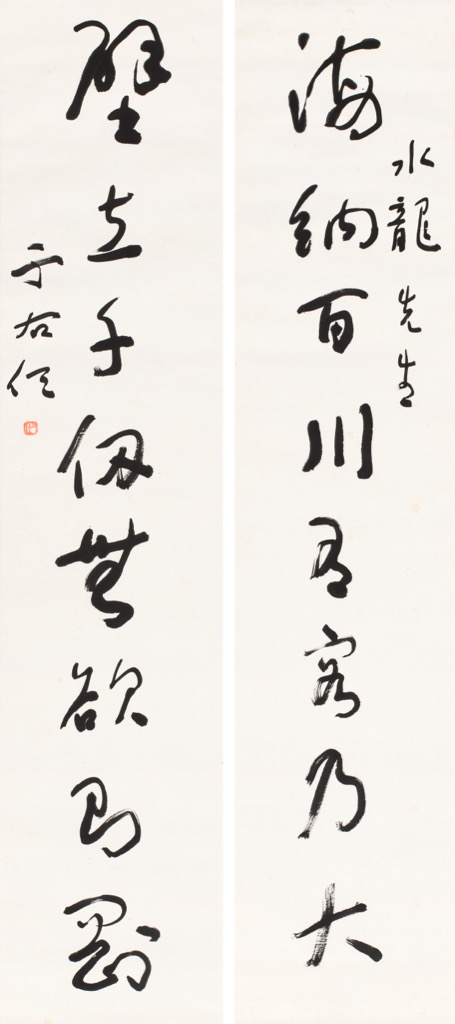 水龍先生
海納百川有容乃大
壁立千仞無欲則剛
于右任